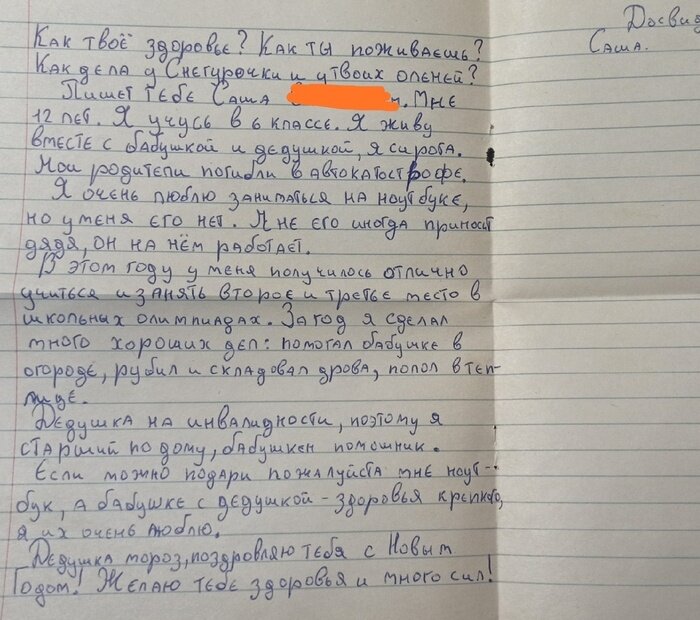 Как твоё здоровье? Как ты поживаешь?
Как дела у Снегурочки и у твоих оленей?
Пишет тебе Саша. Мне
12 лет. Я учусь в 6 классе. Я живу
вместе с бабушкой и дедушкой, я сирота.
Мои родители погибли в автокатострофе.
Я очень люблю заниматься на ноутбуке,
но у меня его нет. Мне его иногда приносит
дядя, он на нём работает.
В этом году у меня получилось отлично
учиться и занять второе и третье место в
школьных олимпиадах. За год я сделал
много хороших дел: помогал бабушке в
огороде, рубил и складовал дрова, полол в теп-
лице.
Дедушка на инвалидности, поэтому я
старший по дому, бабушкен помошник.
Если можно подари пожалуйста мне ноут-
бук, а бабушке с дедушкой - здоровья крепкого,
я их очень люблю.
Дедушка мороз, поздровляю тебя с Новым
Годом! Желаю тебе здоровья и много сил!
Досвид
Саша.